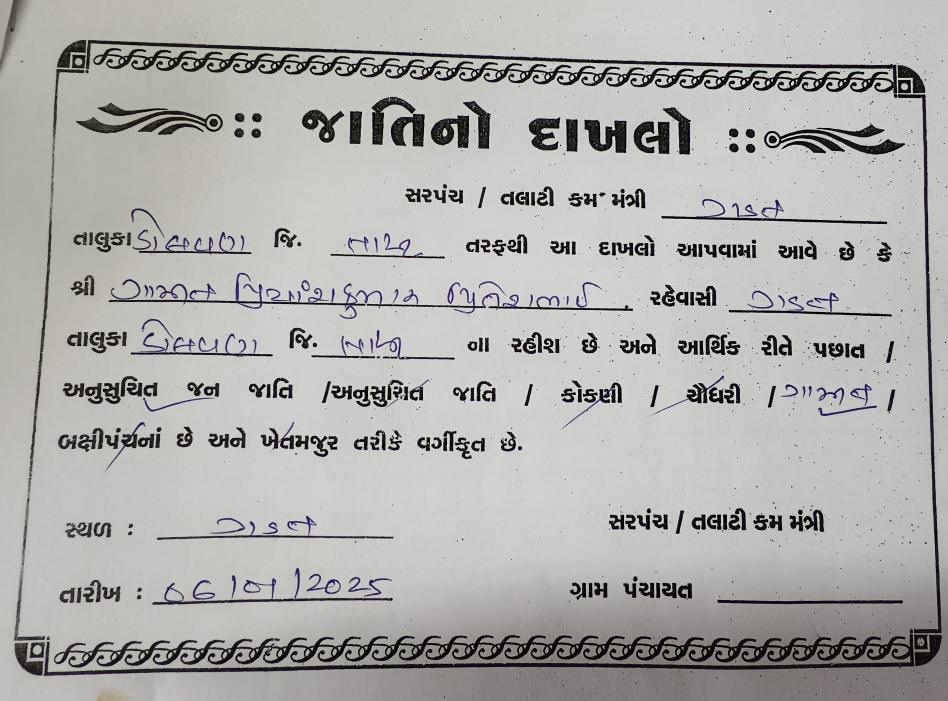 :: જાતિનો દાખલો ::
સરપંચ / તલાટી કમ મંત્રી ગડત
તાલુકા ડોલવણ જિ. તાપી તરફથી આ દાખલો આપવામાં આવે છે કે
શ્રી ગામીત પ્રિયાંશકુમાર પ્રિતેશભાઈ . રહેવાસી ગડત
તાલુકા ડોલવણ જિ. તાપી ના રહીશ છે અને આર્થિક રીતે પછાત /
અનુસુચિત જન જાતિ /અનુસુચિત જાતિ / કોકણી / ચૌધરી / ગામીત /
બક્ષીપંચનાં છે અને ખેતમજુર તરીકે વર્ગીકૃત છે.
સ્થળ : ગડત
સરપંચ / તલાટી કમ મંત્રી
તારીખ : 06/01/2025
ગ્રામ પંચાયત